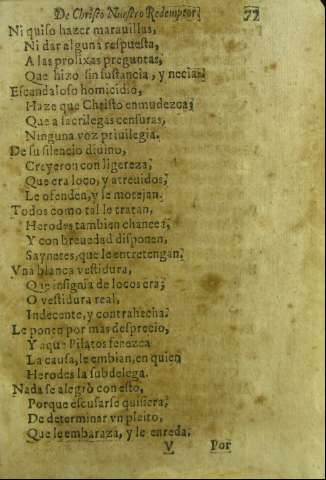 De Christo Nuestro Redemptor. 77
Ni quiso hazer marauillas,
Ni dar alguna respuesta,
A las prolixas preguntas,
Que hizo sin sustancia, y necias.
Escandaloso homicidio,
Haze que Christo enmudezca;
Que a sacrilegas censuras,
Ninguna voz priuilegia.
De su silencio diuino,
Creyeron con ligereza;
Que era loco, y atreuidos,
Le ofenden, y le motejan.
Todos como tal le tratan,
Herodes tambien chancea;
Y con breuedad disponen,
Saynetes, que le entretengan.
Vna blanca vestidura,
Que insignia de locos era;
O vestidura real,
Indecente, y contrahecha.
Le ponen por mas desprecio,
Y a que Pilatos fenezca
La causa, le embian, en quien
Herodes la subdelega.
Nada se alegrò con esto,
Porque escusarse quisiera;
De determinar vn pleito,
Que le embaraza, y le enreda.
V Por